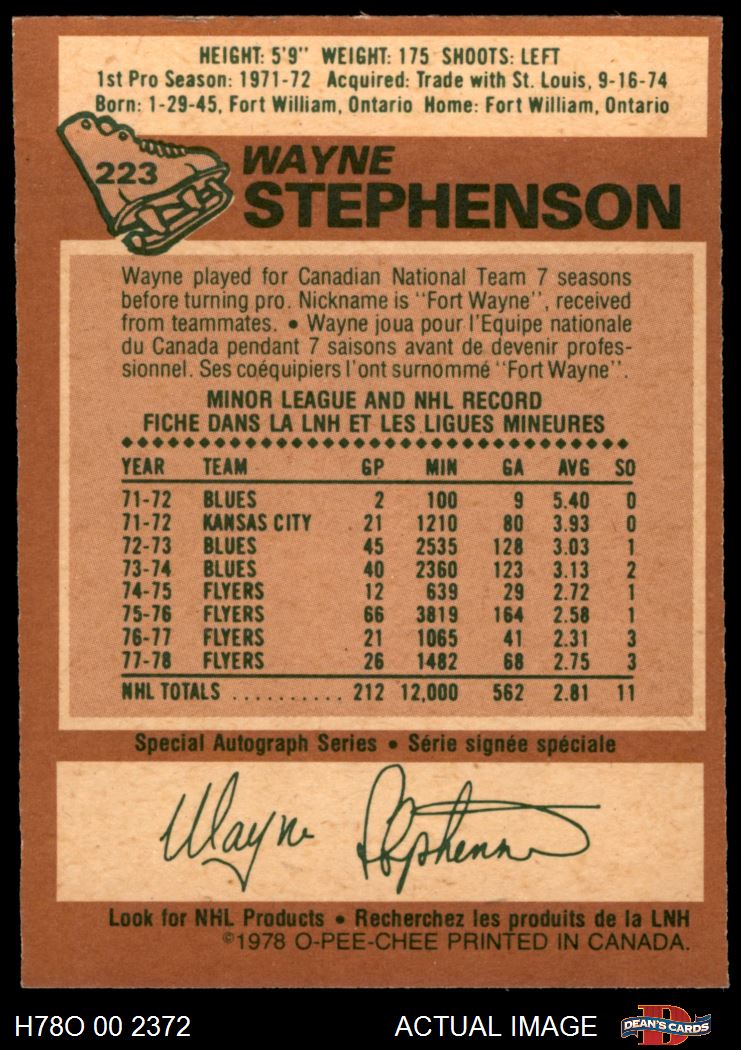 HEIGHT: 5'9" WEIGHT: 175 SHOOTS: LEFT
1st Pro Season: 1971-72 Acquired: Trade with St. Louis, 9-16-74
Born: 1-29-45, Fort William, Ontario Home: Fort William, Ontario
223
WAYNE
STEPHENSON
Wayne played for Canadian National Team 7 seasons
before turning pro. Nickname is "Fort Wayne", received
from teammates. • Wayne joua pour l'Equipe nationale
du Canada pendant 7 saisons avant de devenir profes-
sionnel. Ses coéquipiers l'ont surnommé "Fort Wayne".
MINOR LEAGUE AND NHL RECORD
FICHE DANS LA LNH ET LES LIGUES MINEURES
YEAR TEAM GP MIN GA AVG SO
71-72 BLUES 2 100 9 5.40 0
71-72 KANSAS CITY 21 1210 80 3.93 0
72-73 BLUES 45 2535 128 3.03 1
73-74 BLUES 40 2360 123 3.13 2
74-75 FLYERS 12 639 29 2.72 1
75-76 FLYERS 66 3819 164 2.58 1
76-77 FLYERS 21 1065 41 2.31 3
77-78 FLYERS 26 1482 68 2.75 3
NHL TOTALS .......... 212 12,000 562 2.81 11
Special Autograph Series • Série signée spéciale
Wayne Stephenson
Look for NHL Products • Recherchez les produits de la LNH
©1978 O-PEE-CHEE PRINTED IN CANADA.
H78O 00 2372 ACTUAL IMAGE D DEAN'S CARDS